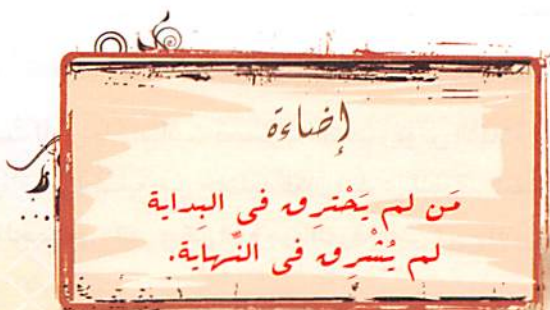 إضاءة
مَن لم يَحْترِق في البِداية
لم يُشْرِق في النِّهاية.